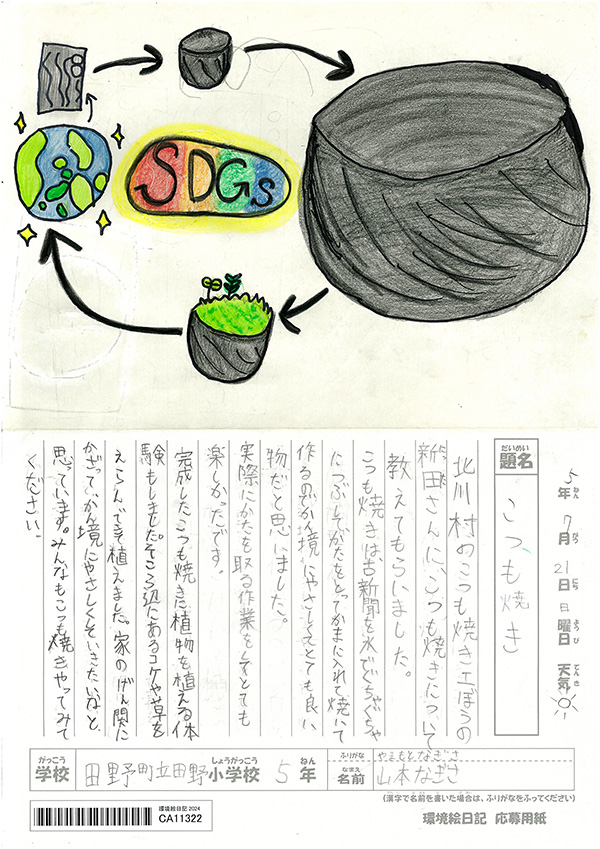 SDGs
5年 7月 21日 日曜日 天気
ねん がつ にち ようび てんき
だいめい
題名
こつも焼き
北川村のこつも焼き工ぼうの
新田さんに、こつも焼きについて
教えてもらいました。
こつも焼きは、古新聞を水でぐちゃぐちゃ
につぶしてかたをとってかまに入れて焼いて
作るのでかん境にやさしくてとても良い
物だと思いました。
実際にかたを取る作業をしてとても
楽しかったです。
完成したこつも焼きに植物を植える体
験もしました。そこら辺にあるコケや草を
えらんできて植えました。家のげん関に
かざって、かん境にやさしくしていきたいなと、
思っています。みんなもこつも焼きやってみて
ください。
がっこう しょうがっこう ねん
学校 田野町立田野小学校 5年
ふりがな やまもとなぎさ
なまえ
名前 山本なぎさ
(漢字で名前を書いた場合は、ふりがなをふってください)
環境絵日記 2024
CA11322
環境絵日記 応募用紙